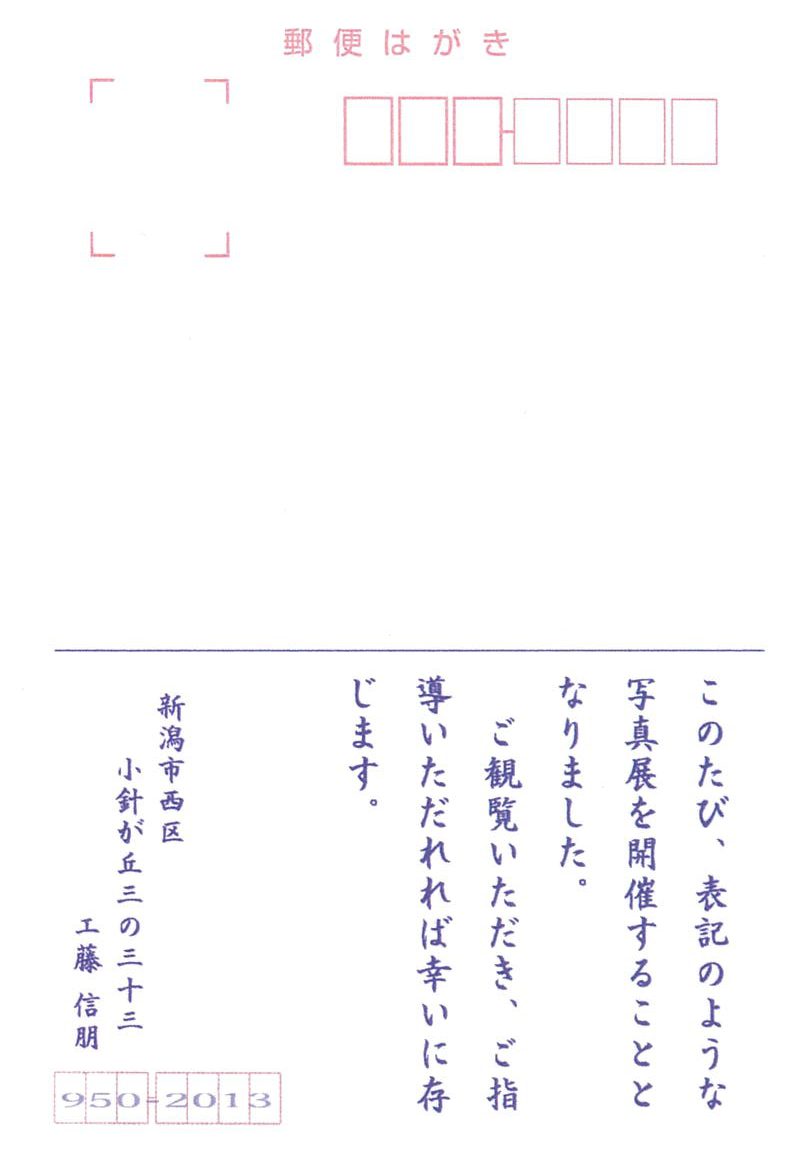 郵便はがき
このたび、表記のような
写真展を開催することと
なりました。
ご観覧いただき、ご指
導いただれれば幸いに存
じます。
新潟市西区
小針が丘三の三十三
工藤 信朋
950-2013